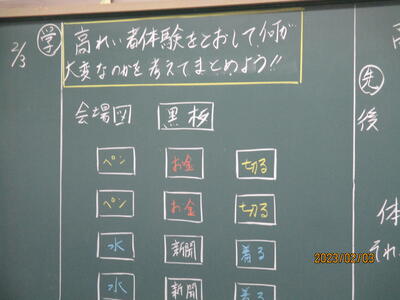 2/3
学
高れい者体験をとおして、何が
大変なのかを考えてまとめよう!!
会場図 黒板
ペン お金 切る
ペン お金 切る
水 新聞 着る
水 新聞 着る
先
後
体
それ
2023/02/03